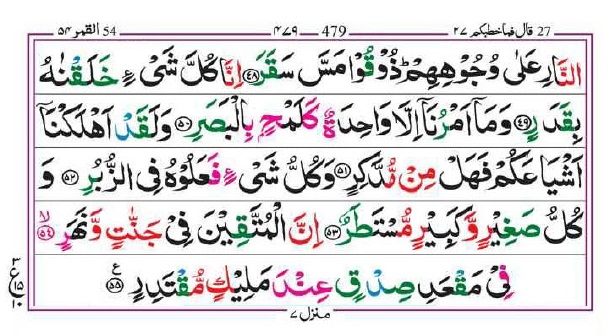 27 قال فما خطبكم ٢٧ 479 ٤٧٩ 54 القمر ٥٤
النَّارِ عَلٰى وُجُوْهِهِمْ ؕ ذُوْقُوْا مَسَّ سَقَرَ ﴿۴۸﴾ اِنَّا كُلَّ شَىْءٍ خَلَقْنٰهُ
بِقَدَرٍ ﴿۴۹﴾ وَمَاۤ اَمْرُنَاۤ اِلَّا وَاحِدَةٌ كَلَمْحٍۭ بِالْبَصَرِ ﴿۵۰﴾ وَلَقَدْ اَهْلَكْنَاۤ
اَشْيَاعَكُمْ فَهَلْ مِنْ مُّدَّكِرٍ ﴿۵۱﴾ وَكُلُّ شَىْءٍ فَعَلُوْهُ فِى الزُّبُرِ ﴿۵۲﴾ وَ
كُلُّ صَغِيْرٍ وَّكَبِيْرٍ مُّسْتَطَرٌ ﴿۵۳﴾ اِنَّ الْمُتَّقِيْنَ فِىْ جَنّٰتٍ وَّنَهَرٍ ۙ﴿۵۴﴾
فِىْ مَقْعَدِ صِدْقٍ عِنْدَ مَلِيْكٍ مُّقْتَدِرٍ ﴿۵۵﴾ ع
منزل ٧